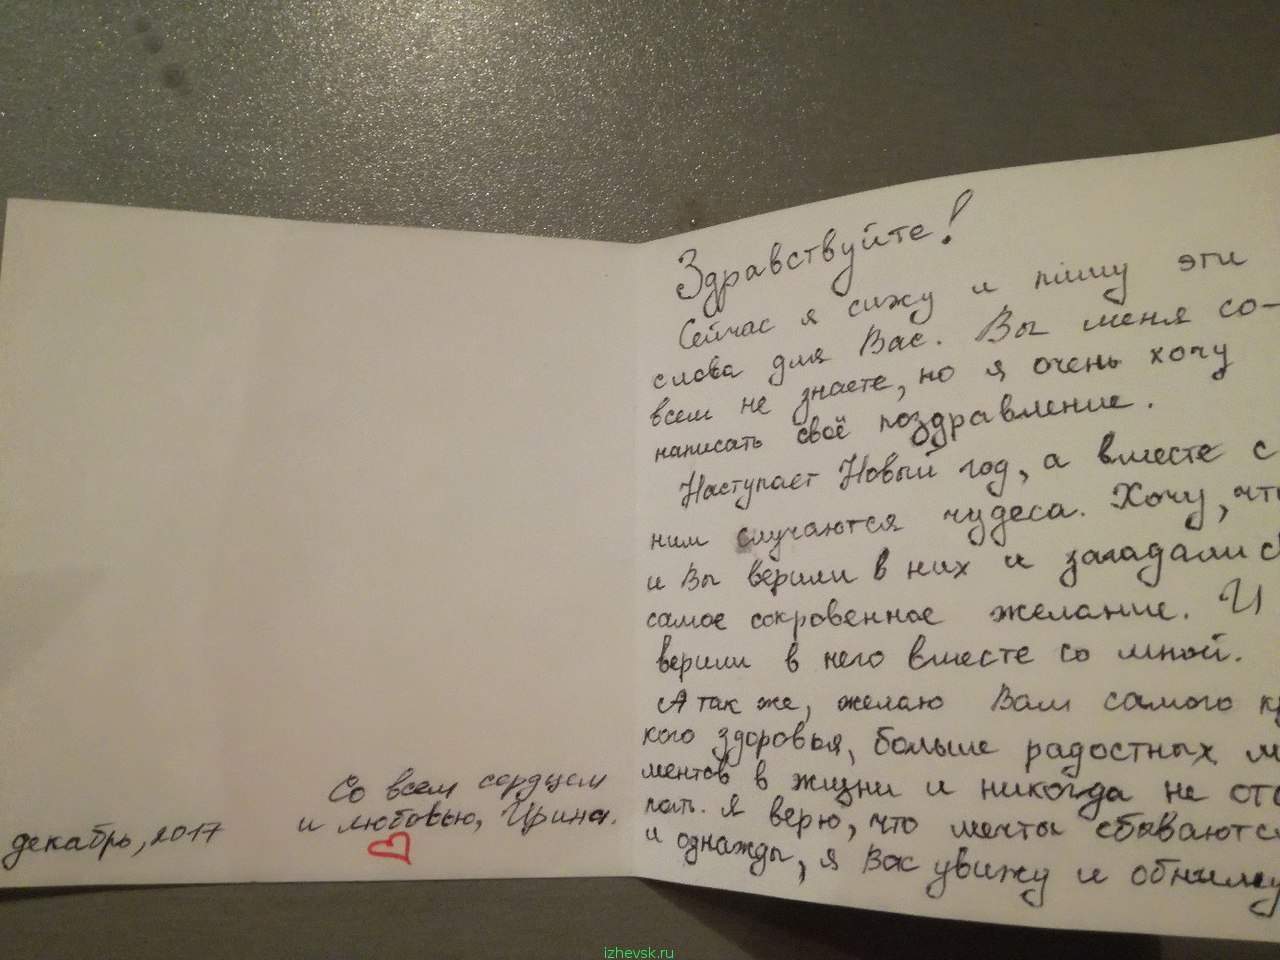 Здравствуйте!
Сейчас я сижу и пишу эти
слова для Вас. Вы меня со-
всем не знаете, но я очень хочу
написать своё поздравление.
Наступает Новый год, а вместе с
ним случаются чудеса. Хочу, что
и Вы верили в них и загадали с
самое сокровенное желание. И
верили в него вместе со мной.
А так же, желаю Вам самого кр
кого здоровья, больше радостных м
ментов в жизни и никогда не
Я верю, что мечты сбываются
и однажды, я Вас увижу и обниму
Со всем сердцем
и любовью, Ирина.
декабрь, 2017
izhevsk.ru